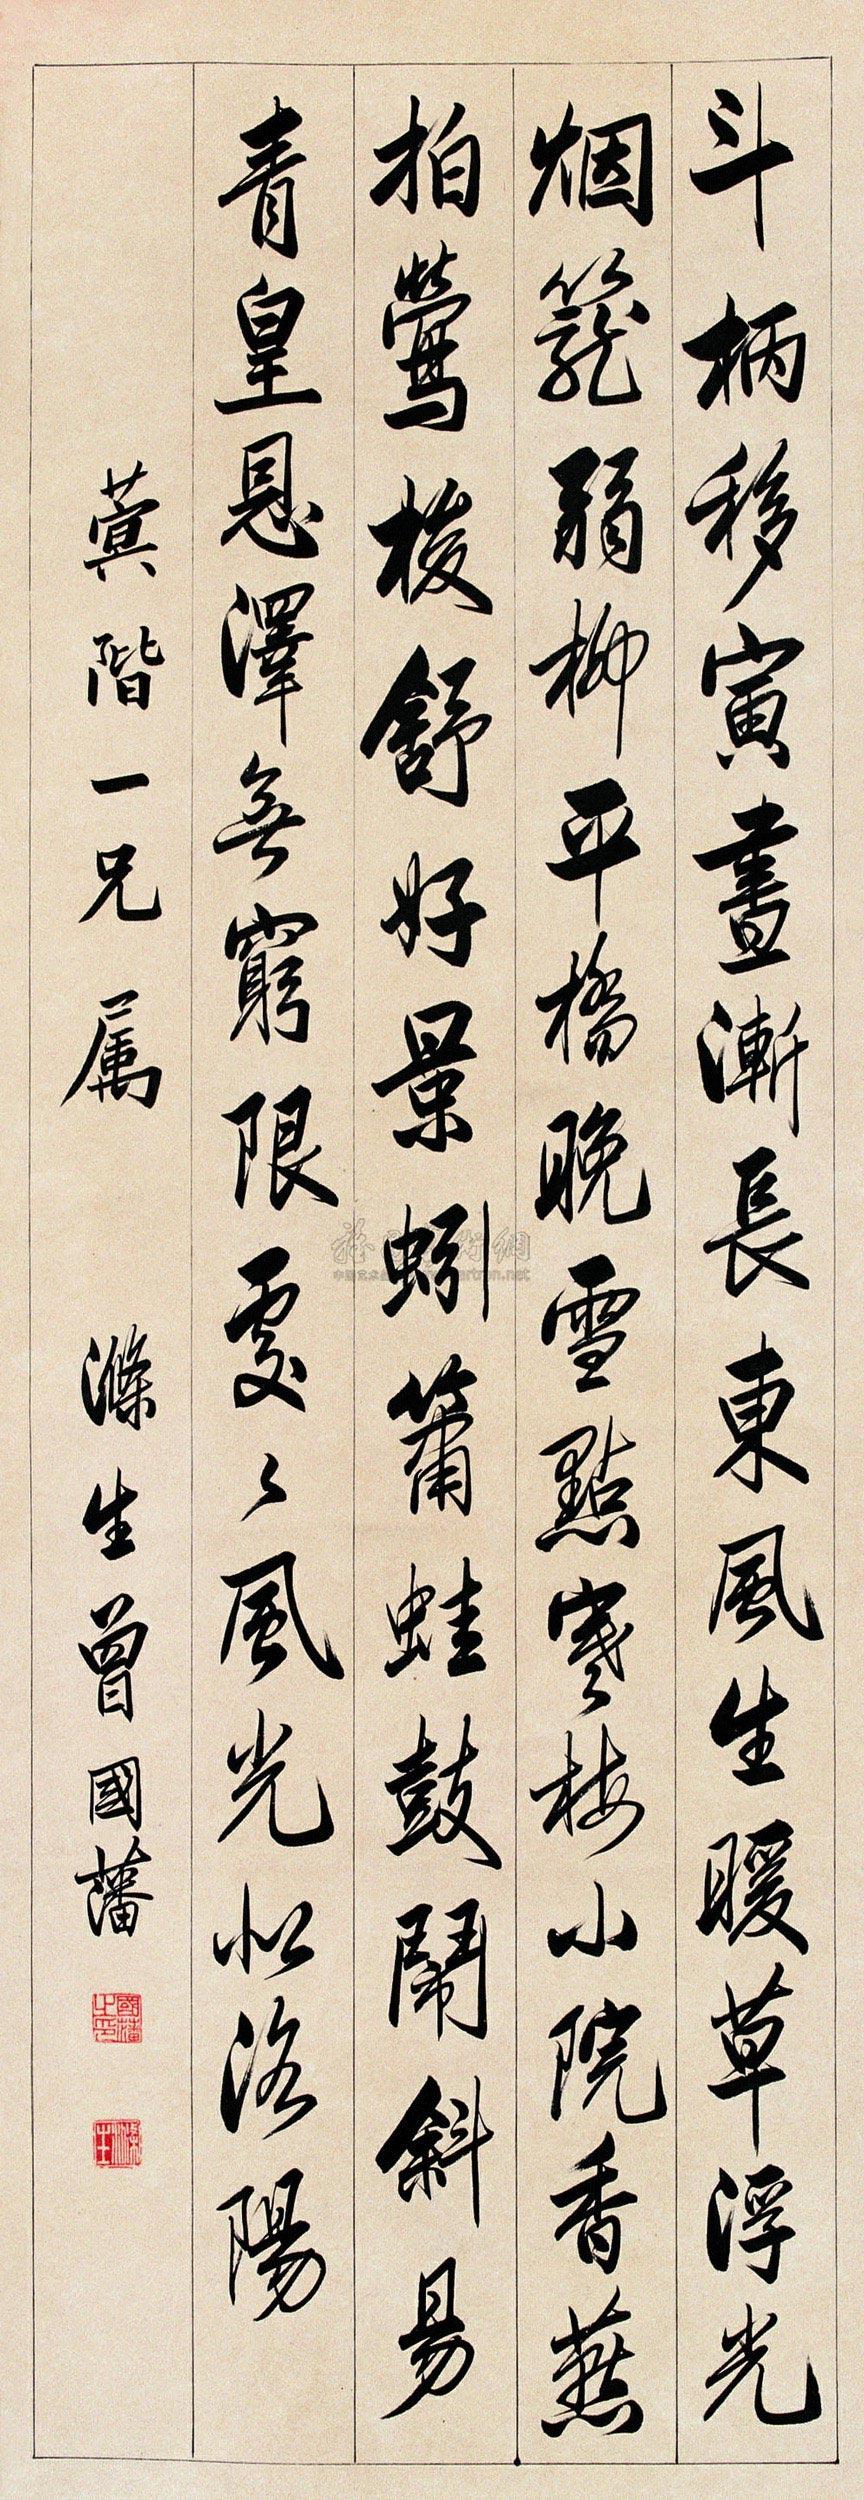 斗柄移寅晝漸長東風生暖草浮光
烟籠弱柳平橋晚雪點寒梅小院香燕
拍鶯梭舒好景蚓簫蛙鼓鬧斜昜
青皇恩澤無窮限處〻風光似洛陽
蓂階一兄属
滌生曾國藩
國藩之印
滌生